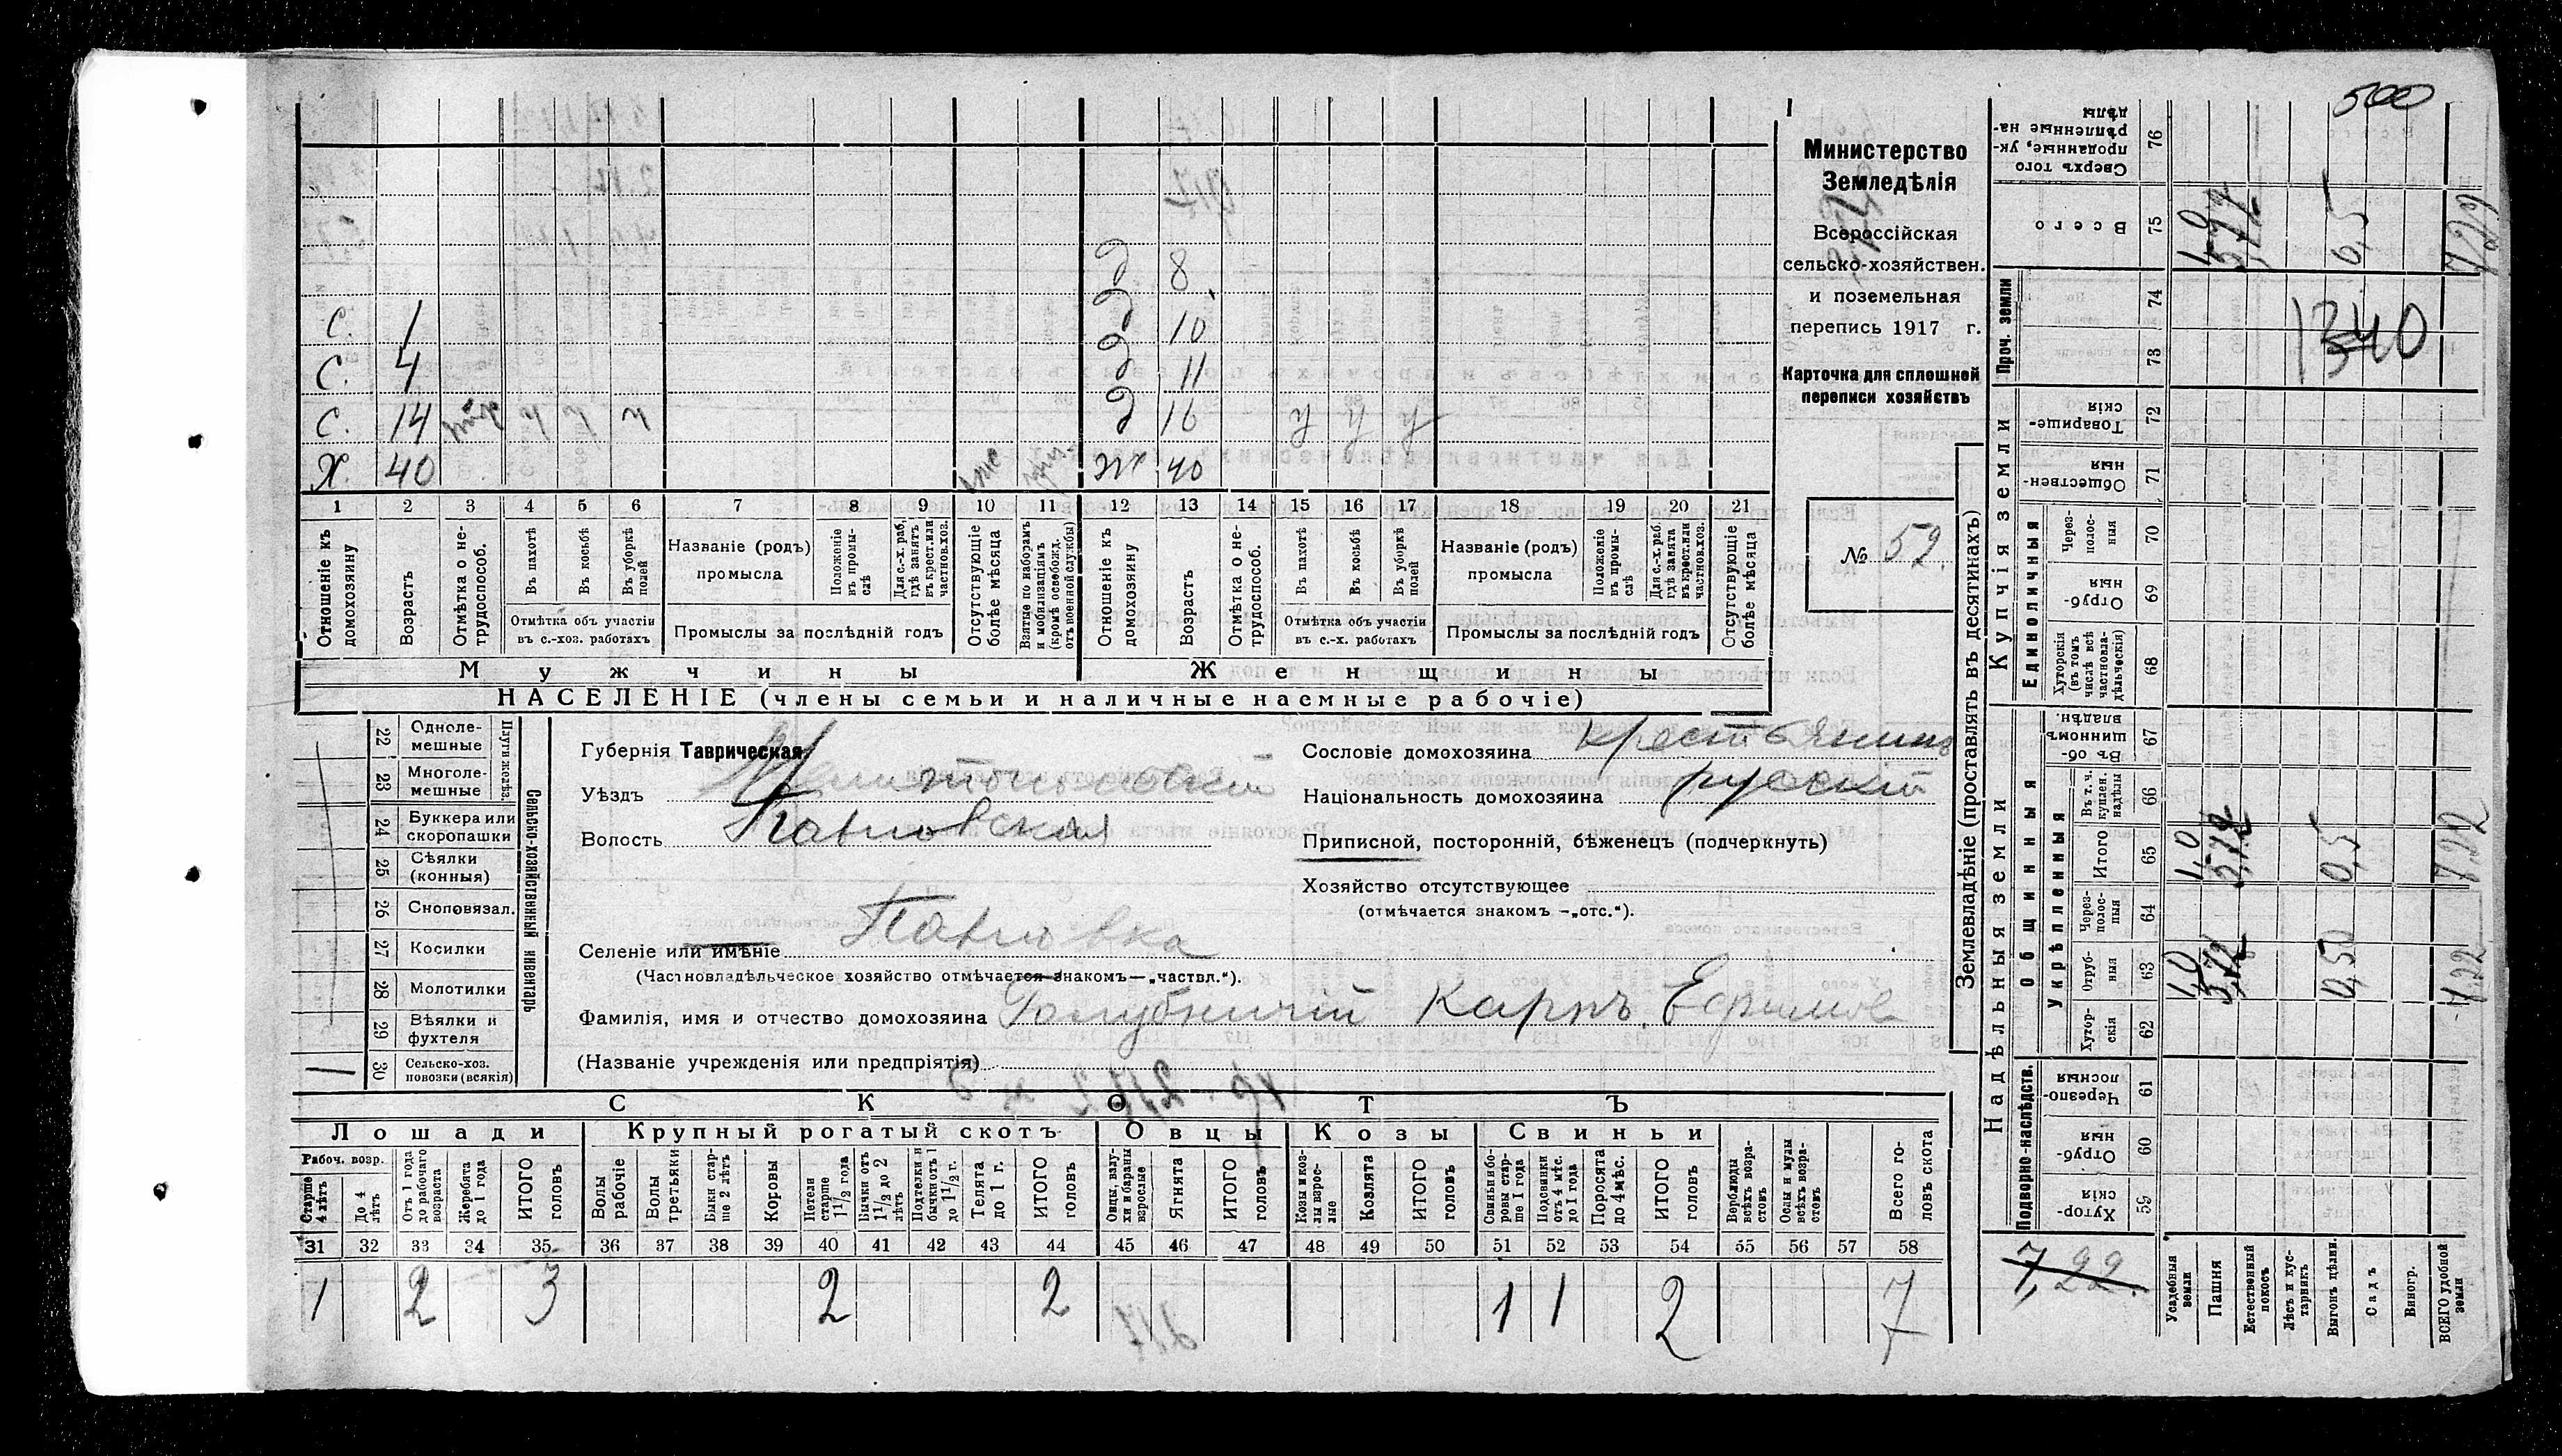 500
Министерство
Земледѣлія
Всероссійская
сельско-хозяйствен.
и поземельная
перепись 1917 г.
Карточка для сплошной
переписи хозяйствъ
№ 52.
д 8
С. 1 д 10
С. 4 д 11
С. 14 д 16
Х. 40 ж 40
1 2 3 4 5 6 7 8 9 10 11 12 13 14 15 16 17 18 19 20 21
Отношеніе къ домохозяину
Возрастъ
Отмѣтка о не-трудоспособ.
Въ пахотѣ
Въ косьбѣ
Въ уборкѣ полей
Отмѣтка объ участіи въ с.-хоз. работахъ
Названіе (родъ) промысла
Положеніе въ промы-слѣ
Для с.-х. раб, гдѣ занятъ въ крест. или частнов. хоз.
Промыслы за послѣдній годъ
Отсутствующіе болѣе мѣсяца
Взятые по наборамъ и мобилизаціямъ (кромѣ освобожд. отъ военной службы)
Отношеніе къ домохозяину
Возрастъ
Отмѣтка о не-трудоспособ.
Въ пахотѣ
Въ косьбѣ
Въ уборкѣ полей
Отмѣтка объ участіи въ с.-х. работахъ
Названіе (родъ) промысла
Положеніе въ промы-слѣ
Для с.-х. раб. гдѣ занята въ крест. или частнов. хоз.
Промыслы за послѣдній годъ
Отсутствующіе болѣе мѣсяца
Мужчины Женщины
НАСЕЛЕНІЕ (члены семьи и наличные наемные рабочіе)
22 Одноле-мешные
23 Многоле-мешные
Плуги желѣз.
24 Буккера или скоропашки
25 Сѣялки (конныя)
26 Сноповязал.
27 Косилки
28 Молотилки
29 Вѣялки и фухтеля
30 Сельско-хоз. повозки (всякія)
1
Сельско-хозяйственный инвентарь
Губернія Таврическая
Уѣздъ Мелитопольскій
Волость Павловская
Селеніе или имѣніе Павловка
(Частновладѣльческое хозяйство отмѣчается знакомъ—„частвл.“).
Фамилія, имя и отчество домохозяина Голубничій Карпъ Ефимов
(Названіе учрежденія или предпріятія)
Сословіе домохозяина крестьянинъ
Національность домохозяина русскій
Приписной, посторонній, бѣженец (подчеркнуть)
Хозяйство отсутствующее
(отмѣчается знакомъ —„отс.“).
СКОТЪ
Лошади Крупный рогатый скотъ Овцы Козы Свиньи
Рабоч. возр.
Старше 4 лѣтъ
До 4 лѣтъ
Отъ 1 года до рабочаго возраста
Жеребята до 1 года
ИТОГО головъ
Волы рабочіе
Волы третьяки
Быки стар-ше 2 лѣтъ
Коровы
Нетели старше 1 1/2 года
Бычки отъ 1 1/2 до 2 лѣтъ
Подтелки и бычки отъ 1 до 1 1/2 г.
Телята до 1 г.
ИТОГО головъ
Овцы, валу-хи и бараны взрослые
Ягнята
ИТОГО головъ
Козы и коз-лы взрос-лые
Козлята
ИТОГО головъ
Свиньи и бо-ровы стар-ше 1 года
Подсвинки отъ 4 мѣс. до 1 года
Поросята до 4 мѣс.
ИТОГО головъ
Верблюды всѣхъ возра-стовъ
Ослы и мулы всѣхъ возра-стовъ
Всего го-ловъ скота
31 32 33 34 35 36 37 38 39 40 41 42 43 44 45 46 47 48 49 50 51 52 53 54 55 56 57 58
1 2 3 2 2 1 1 2 7
Землевладѣніе (проставлять въ десятинахъ)
Надѣльныя земли
Купчія земли
Проч. земли
Подворно-наслѣдств.
Общинныя
Укрѣпленныя
Единоличныя
Хутор-скія 59
Отруб-ныя 60
Черезпо-лосныя 61
Хутор-скія 62
Отруб-ныя 63
Через-полос-ныя 64
Итого 65
Въ т. ч. куплен. надѣлы 66
Въ об-щинномъ владѣн. 67
Хуторскія (въ томъ числѣ всѣ частновла-дѣльческія) 68
Отруб-ныя 69
Через-полос-ныя 70
Обществен-ныя 71
Товарище-скія 72
73
74
Всего 75
Сверхъ того проданные, ук-рѣпленные на-дѣлы 76
Усадебныя земли
Пашня
Естественный покосъ
Лѣсъ и кус-тарникъ
Выгонъ дѣлян.
Садъ
Виногр.
ВСЕГО удобной земли
7,22
1,0 5,72 0,50 7,22
1,0 5,72 0,5 7,22
1,0 5,72 0,5 7,22
1340